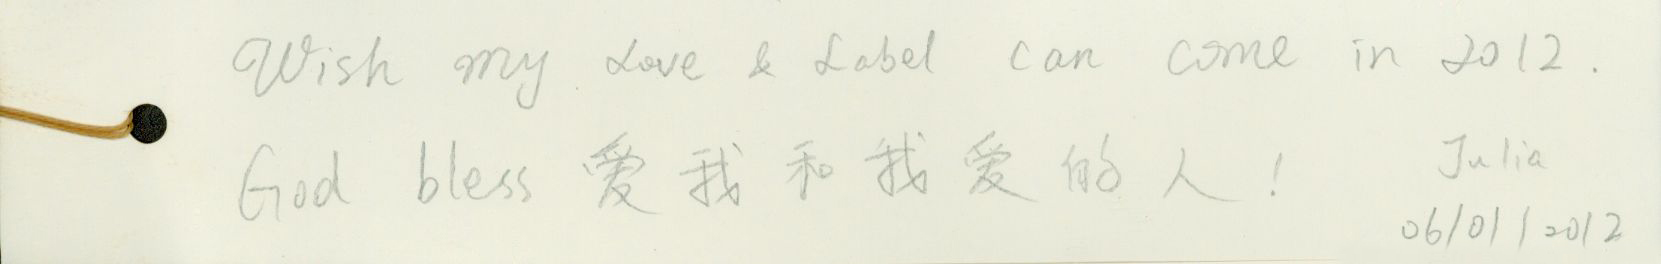 Wish my Love & Label can come in 2012.
God bless 爱我和我爱的人!
Julia
06/01/2012